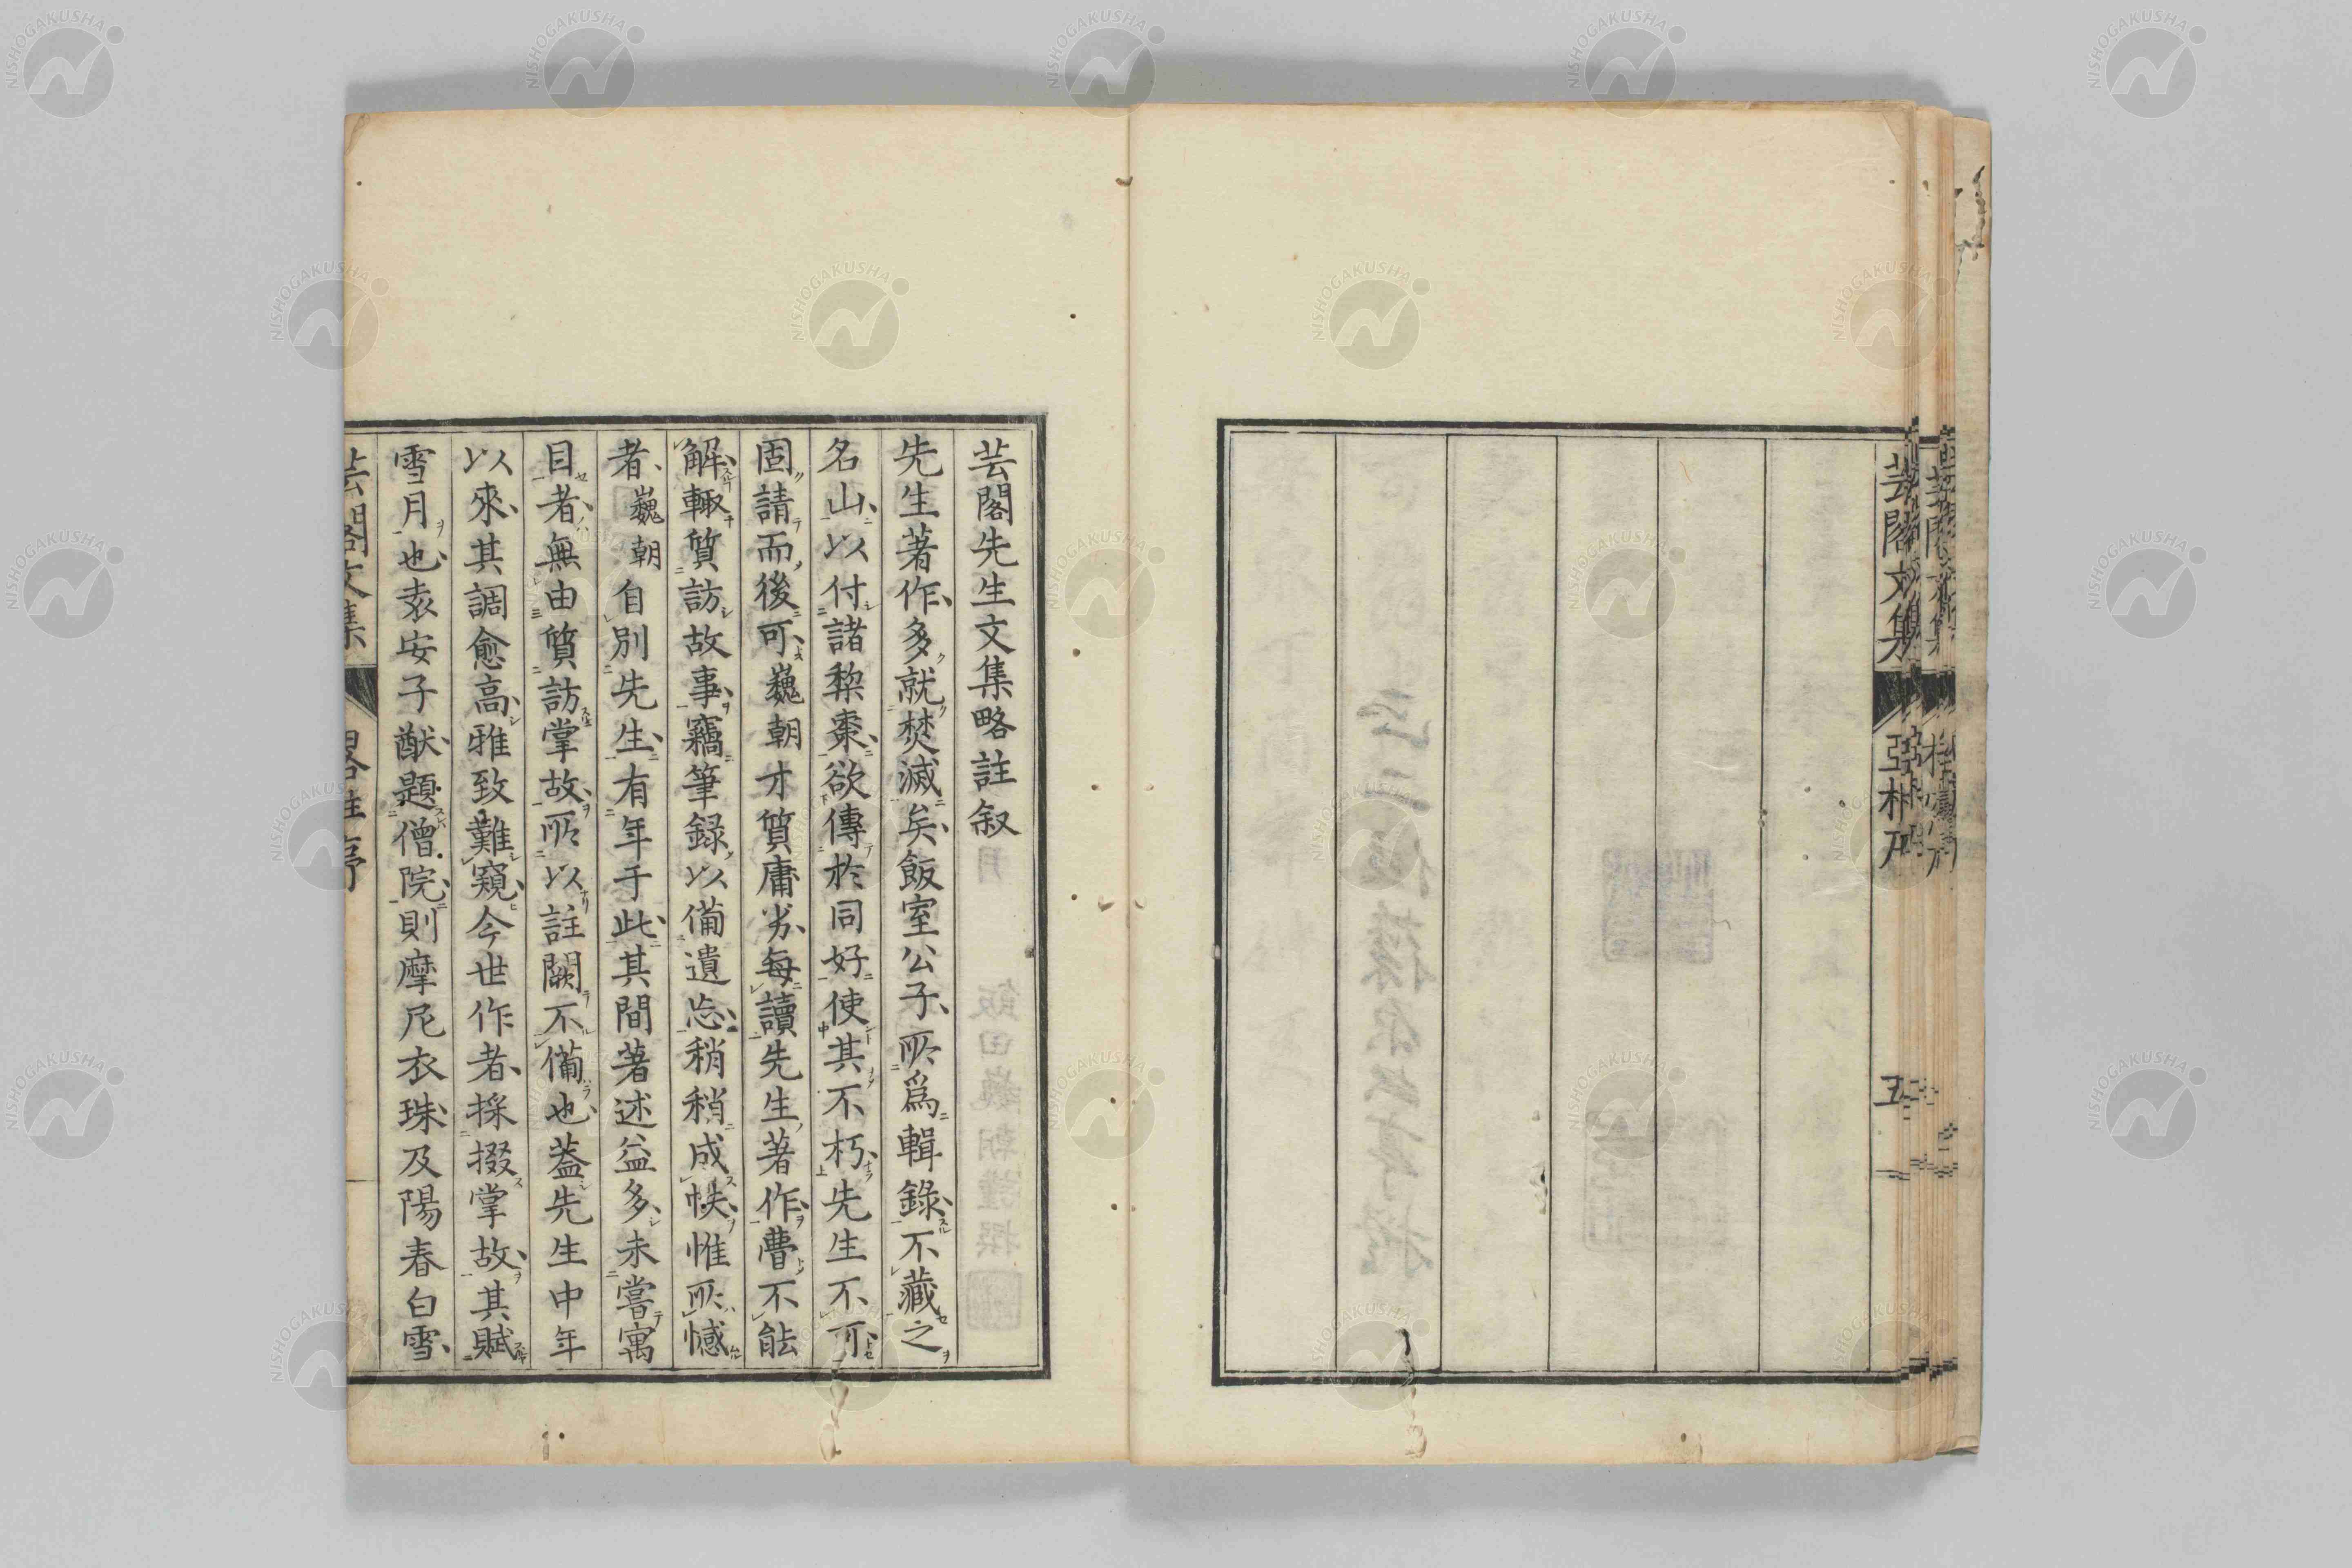 芸閣文集
亞朴刀
五
芸閣先生文集略註叙
先生著作多就焚滅矣飯室公子所爲輯錄不藏之
名山以付諸棃棗欲傳於同好使其不朽先生不可
固請而後可巍朝才質庸劣每讀先生著作瞢不能
解輙質訪故事竊筆録以備遺忘稍稍成帙惟所憾
者巍朝自別先生有年于此其間著述益多未嘗寓
目者無由質訪掌故所以註闕不備也蓋先生中年
以來其調愈高雅致難窺今世作者採掇掌故其賦
雪月也袁安子猷題僧院則摩尼衣珠及陽春白雪
芸閣文集
畧註序
NISHOGAKUSHA